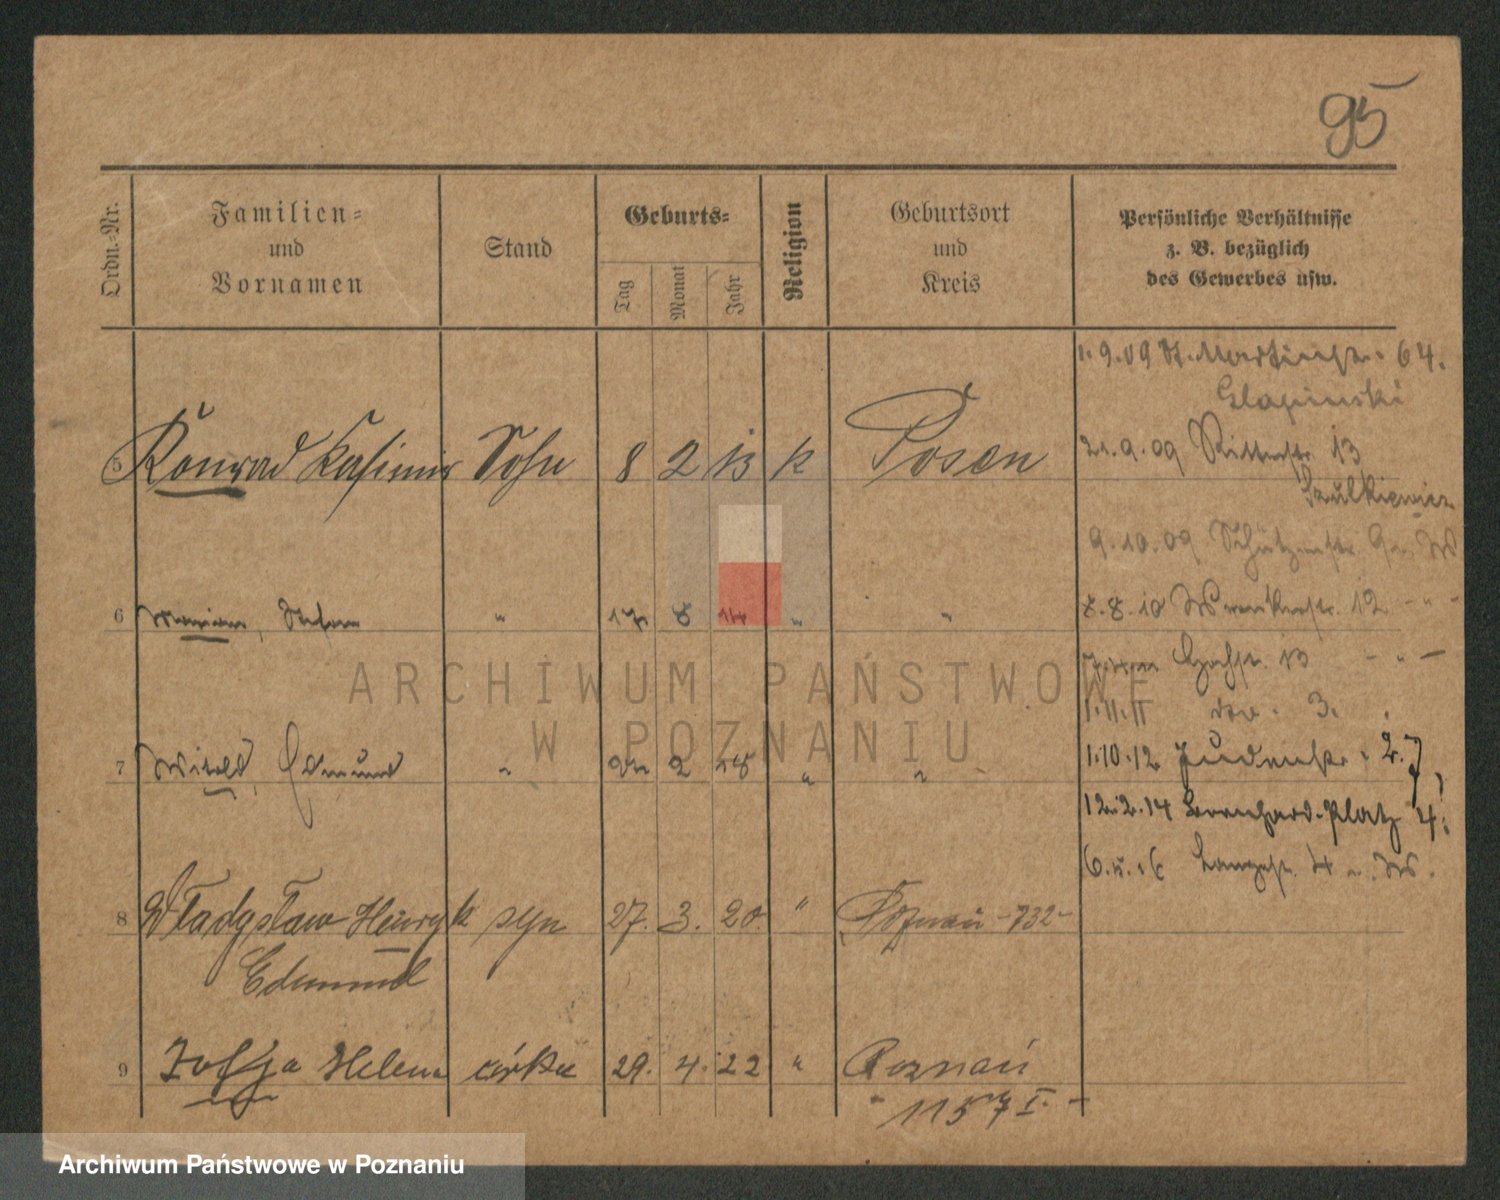 95
Ordn.-Nr.
Familien-
und
Vornamen
Stand
Geburts-
Tag
Monat
Jahr
Religion
Geburtsort
und
Kreis
Persönliche Verhältnisse
z. B. bezüglich
des Gewerbes usw.
1.9.09 St. Martinstr. 64.
Glapinski
5 Konrad Kasimir Sohn 8 2 13 k Posen
21.9.09 Ritterstr. 13
Szulkiewicz
9.10.09 Schützenstr.
6 Marian, Stefan " 17 8 14 " "
8.8.10 12 - " -
13 - " -
1.11.11 3.
7 Witold, Edmund " 2 18 " "
1.10.12 Judenstr. 27
12.2.14 Bernhard-Platz 4.
Langestr. 4
8 Władysław Henryk syn 27. 3. 20. " Poznań -732-
Edmund
9 Zofja Helena córka 29. 4. 22 " Poznań
1157 I. -
ARCHIWUM PAŃSTWOWE
W POZNANIU
Archiwum Państwowe w Poznaniu